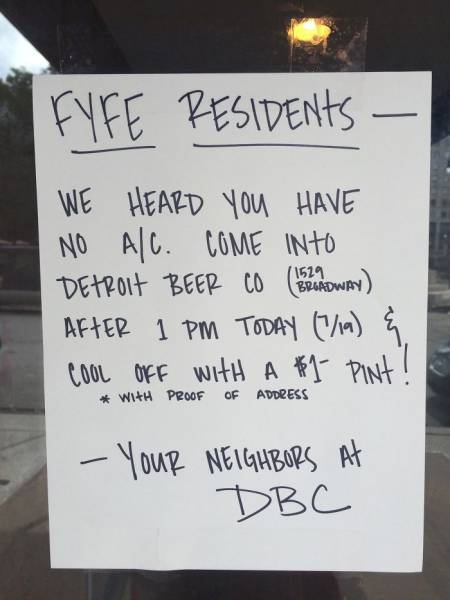 FYFE RESIDENTS —
WE HEARD YOU HAVE
NO A/C. COME INTO
DETROIT BEER CO (1529 BROADWAY)
AFTER 1 PM TODAY (7/19) &
COOL OFF WITH A $1- PINT!
* WITH PROOF OF ADDRESS
— YOUR NEIGHBORS AT
DBC